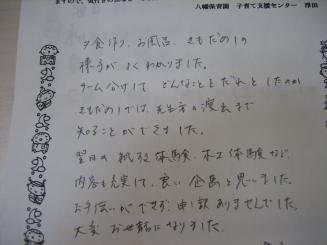 ますので、
八幡保育園 子育て支援センター 澤田
夕食作り、お風呂、きもだめしの
様子がよくわかりました。
チーム分けして どんなことをだれとしたのか
きもだめしでは、先生方の演技まで
知ることができました。
翌日の 紙すき体験、木工体験など、
内容も充実して、良い企画と思いました。
お手伝いができず、申し訳ありませんでした。
大変 お世話になりました。